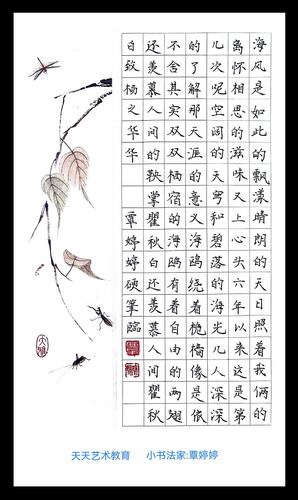 海风是如此的飘漾晴朗的天日照着我俩的
离怀相思的滋味又上心头六年以来这是第
几次呢空阔的天穹和碧落的海光几人深深
的了解那天涯的意义海鸥绕着桅樯像是依
不舍其实双双栖宿的海鸥有着自由的两翅
还羡慕人间的鞅掌瞿秋白还羡慕人间瞿秋
白致杨之华华 覃婷婷硬笔临
天天艺术教育 小书法家:覃婷婷